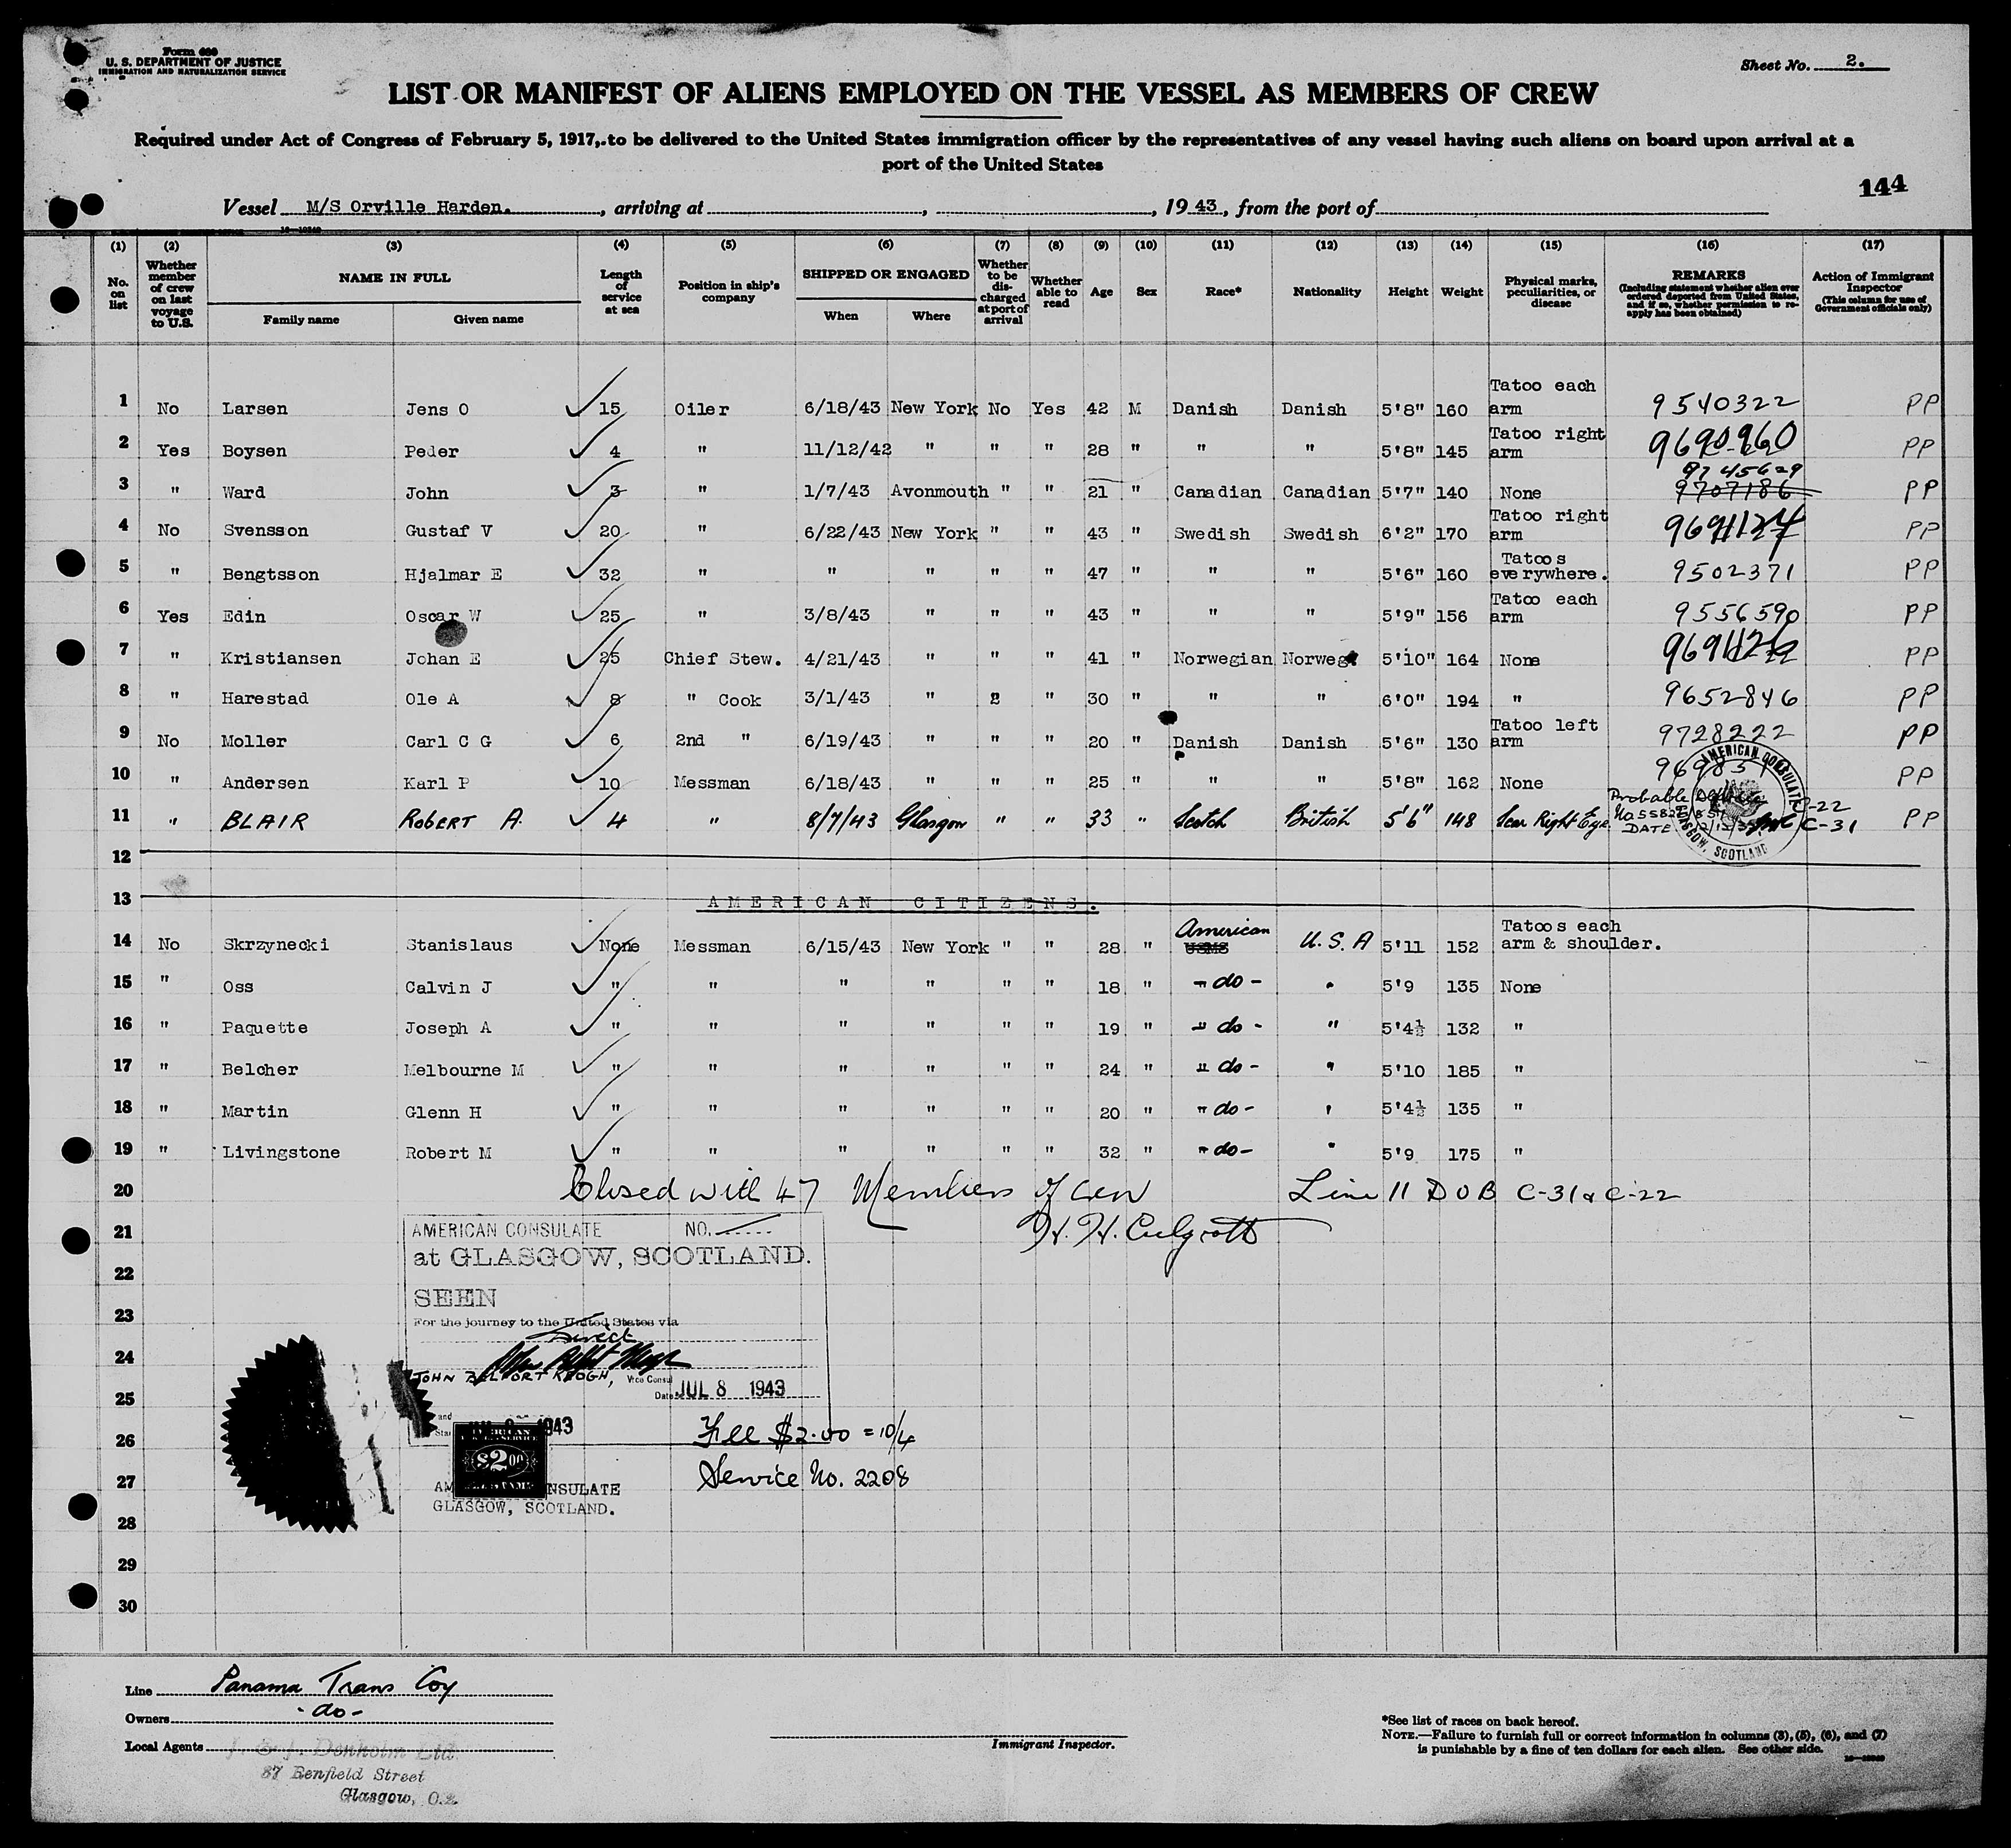 Form 680
U. S. DEPARTMENT OF JUSTICE
IMMIGRATION AND NATURALIZATION SERVICE
Sheet No. 2.
LIST OR MANIFEST OF ALIENS EMPLOYED ON THE VESSEL AS MEMBERS OF CREW
Required under Act of Congress of February 5, 1917, to be delivered to the United States immigration officer by the representatives of any vessel having such aliens on board upon arrival at a
port of the United States
144
Vessel M/S Orville Harden. , arriving at , , 19 43 , from the port of
(1) (2) (3) (4) (5) (6) (7) (8) (9) (10) (11) (12) (13) (14) (15) (16) (17)
No. on list Whether member of crew on last voyage to U.S. NAME IN FULL Family name Given name Length of service at sea Position in ship's company SHIPPED OR ENGAGED When Where Whether to be discharged at port of arrival Whether able to read Age Sex Race* Nationality Height Weight Physical marks, peculiarities, or disease REMARKS (Including statement whether alien ever ordered deported from United States, and if so, whether permission to reapply has been obtained) Action of Immigrant Inspector (This column for use of Government officials only)
1 No Larsen Jens O 15 Oiler 6/18/43 New York No Yes 42 M Danish Danish 5'8" 160 Tatoo each arm 9540322 PP
2 Yes Boysen Peder 4 " 11/12/42 " " " 28 " " " 5'8" 145 Tatoo right arm 9690960 PP
3 " Ward John 3 " 1/7/43 Avonmouth " " 21 " Canadian Canadian 5'7" 140 None 9745629 9707186 PP
4 No Svensson Gustaf V 20 " 6/22/43 New York " " 43 " Swedish Swedish 6'2" 170 Tatoo right arm PP
5 " Bengtsson Hjalmar E 32 " " " " " 47 " " " 5'6" 160 Tatoos everywhere. 9502371 PP
6 Yes Edin Oscar W 25 " 3/8/43 " " " 43 " " " 5'9" 156 Tatoo each arm 9556590 PP
7 " Kristiansen Johan E 25 Chief Stew. 4/21/43 " " " 41 " Norwegian Norweg. 5'10" 164 None PP
8 " Harestad Ole A 8 " Cook 3/1/43 " " " 30 " " " 6'0" 194 " 9652846 PP
9 No Moller Carl C G 6 2nd " 6/19/43 " " " 20 " Danish Danish 5'6" 130 Tatoo left arm 9728222 PP
10 " Andersen Karl P 10 Messman 6/18/43 " " " 25 " " " 5'8" 162 None PP
11 " BLAIR ROBERT A. 4 " 8/7/43 Glasgow " " 33 " Scotch British 5'6" 148 Scar Right Eye. Probable DATE C-22 C-31 PP
AMERICAN CONSULATE GLASGOW, SCOTLAND
12
13 AMERICAN CITIZENS.
14 No Skrzynecki Stanislaus None Messman 6/15/43 New York " " 28 " American U.S.A 5'11 152 Tatoos each arm & shoulder.
15 " Oss Calvin J " " " " " " 18 " " do - " 5'9 135 None
16 " Paquette Joseph A " " " " " " 19 " " do - " 5'4½ 132 "
17 " Belcher Melbourne M " " " " " " 24 " " do - " 5'10 185 "
18 " Martin Glenn H " " " " " " 20 " " do - " 5'4½ 135 "
19 " Livingstone Robert M " " " " " " 32 " " do - " 5'9 175 "
20 Closed with 47 Members of crew Line 11 D O B C-31 & C-22
21 AMERICAN CONSULATE NO.
at GLASGOW, SCOTLAND.
22
SEEN
23 For the journey to the United States via
Direct
24
JOHN BELFORT KEOGH, Vice Consul
25 Date JUL 8 1943
26 Fee $2.00 = 10/4
$2.00
27 Service No. 2208
AMERICAN CONSULATE
GLASGOW, SCOTLAND.
28
29
30
Line Panama Trans Coy
Owners -do-
Local Agents J. & J. Denholm Ltd.
87 Renfield Street
Glasgow, C.2.
Immigrant Inspector.
*See list of races on back hereof.
NOTE.—Failure to furnish full or correct information in columns (3), (5), (6), and (7)
is punishable by a fine of ten dollars for each alien. See other side.